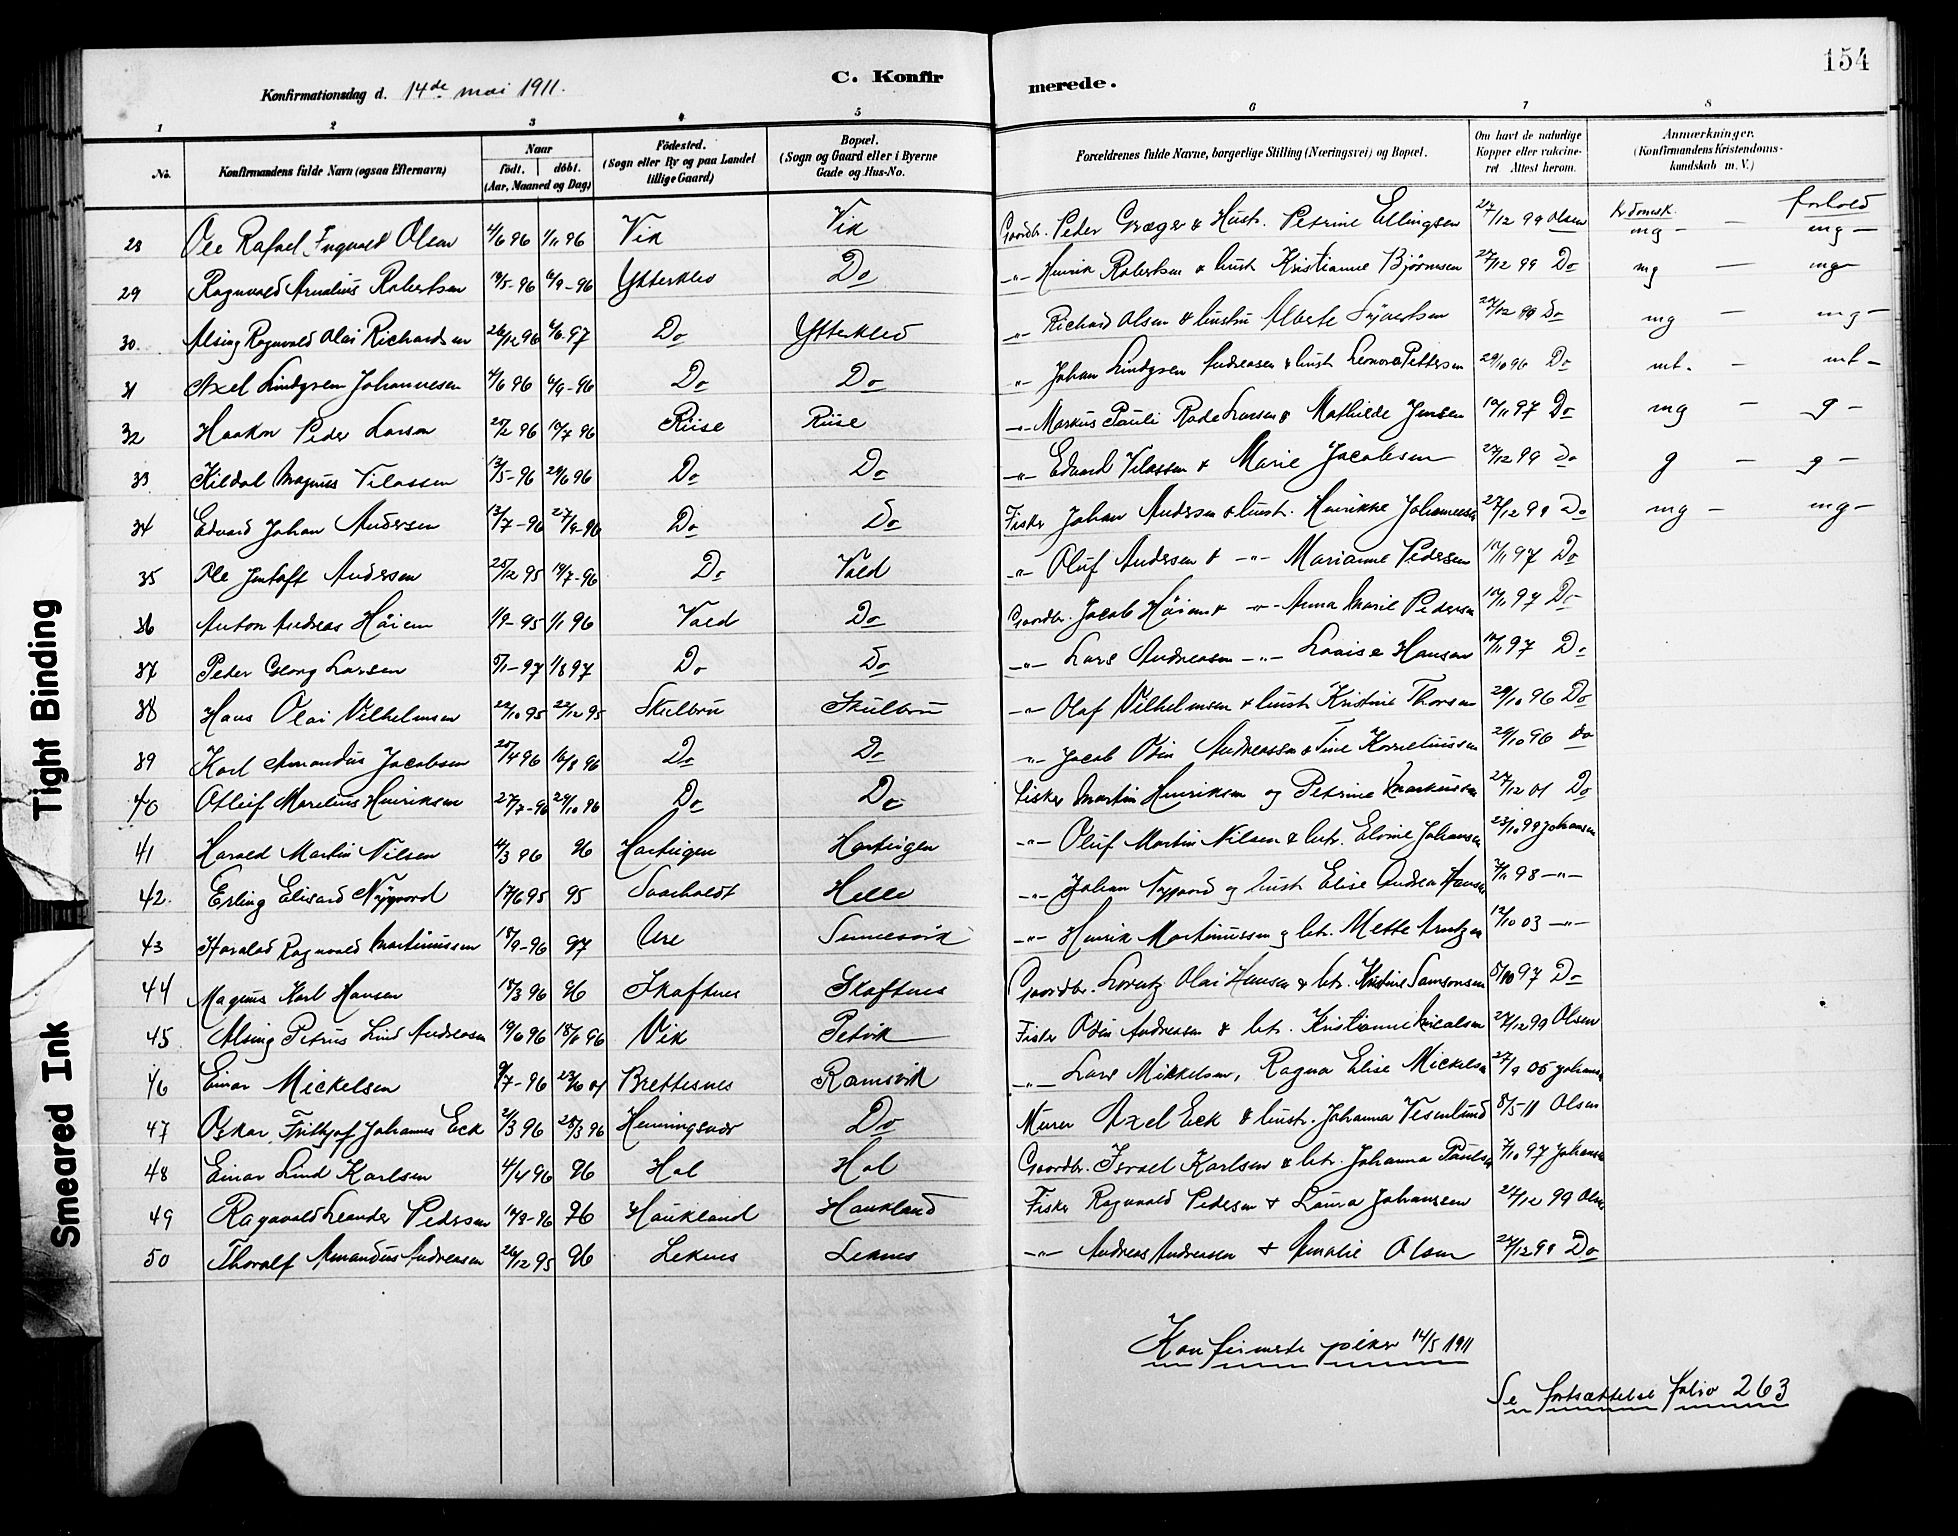 154
C. Konfirmerede.
Konfirmationsdag d. 14de mai 1911.
1 2 3 4 5 6 7 8
No. Konfirmandens fulde Navn (ogsaa Efternavn) Naar født. døbt. (Aar, Maaned og Dag) Fødested. (Sogn eller By og paa Landet tillige Gaard) Bopæl. (Sogn og Gaard eller i Byerne Gade og Hus-No. Forældrenes fulde Navne, borgerlige Stilling (Næringsvei) og Bopæl. Om havt de naturlige Kopper eller vaccineret Attest herom. Anmærkninger. (Konfirmandens Kristendomskundskab m. V.)
kr.domsk. forhold
28 Ole Rafael Ingvald Olsen 4/6 96 1/11 96 Vik Vik Gaardbr. Peder Græger & Hustr. Petrine Ellingsen 27/12 99 Olsen mg — mg —
29 Ragnvald Arnalius Robertsen 19/5-96 6/9-96 Ytterklev Do -"- Henrik Robertsen & hust Kristianne Bjørnsen 27/12 99 Do mg — mg —
30. Alsing Ragnvald Olai Richardsen 26/12 96 6/6 97 Do Ytterklev -"- Richard Olsen & hustru Alberte Syvertsen 27/12 99 Do mg — mg —
31 Axel Lindgren Johannesen 4/6 96 6/9-96 Do Do -"- Johan Lindgren Andreasen & hust Leonora Pettersen 29/10 96 Do mt. — mt —
32 Haakon Peder Larsen 25/2 96 12/7 96 Riise Riise -"- Markus Pauli Rode Larsen & Mathilde Jensen 10/11 97 Do mg — g —
33 Kildal Magnus Tilassen 12/5-96 29/6 96 Do Do -"- Edvard Tilassen & Marie Jacobsen 27/12 99 Do g — g —
34 Edvard Johan Andersen 12/7-96 27/9-96 Do Do Fisker Johan Andersen & hustr. Henrikke Johannesen 27/12 99 Do mg — mg —
35 Ole Jentoft Andersen 25/12 95 12/7-96 Do Vold -"- Oluf Andersen & -"- Marianne Pedersen 10/11 97 Do
36 Anton Andreas Høien 1/9-95 1/1 96 Vold Do Gaardbr. Jacob Høien & -"- Anna Marie Pedersen 10/11 97 Do
37 Peder Georg Larsen 5/1-97 1/8 97 Do Do -"- Lars Andreasen -"- Lovise Hansen 10/11 97 Do
38 Hans Olai Vilhelmsen 22/10 95 22/12 95 Skulbru Skulbru -"- Olaf Vilhelmsen & hust Kristine Thorsen 29/10 96 Do
39 Karl Amandus Jacobsen 25/4 96 16/8 96 Do Do -"- Jacob Odin Andreassen & Tine Korneliussen 29/10 96 Do
40 Otleif Marelius Henriksen 27/7-96 29/10 96 Do Do Fisker Martin Henriksen og Petrine Markussen 27/12 01 Do
41 Harald Martin Nilsen 4/3 96 96 Hartvigen Hartvigen -"- Oluf Martin Nilsen & htr. Elovie Johansen 23/10 99 Johansen
42. Erling Elisard Nygaard 17/6 95 95 Saaholdt Helle -"- Johan Nygaard og hust Elise Andrea Hansen 7/11 98 -"-
43 Harald Ragnvald Martinussen 18/9-96 97 Ure Sennesvik -"- Henrik Martinussen g htr. Mette Arntzen 12/10 03 -"-
44 Magnus Karl Hansen 18/3 96 96 Skaftnes Skaftnes Gaardbr. Lorentz Olai Hansen & htr. Kristine Samsonsen 8/10 97 Do
45 Alsing Petrus Lind Andreasen 19/6 96 18/11 96 Vik Petvik Fisker Odin Andreasen & htr. Kristianne Nicalsen 27/12 99 Olsen
46 Einar Mickelsen 9/7-96 23/6 01 Brettesnes Ramsvik -"- Lars Mikkelsen, Ragna Elise Mickelsen 27/9 05 Johansen
47 Oskar Frithjof Johannes Eck 21/3 96 28/3 96 Henningsvær Do Murer Axel Eck & hustr. Johanna Vesenlund 8/5-11 Olsen
48 Einar Lind Karlsen 4/4 96 96 Hol Hol Gaardbr. Israel Karlsen & htr. Johanna Paulsen 7/10 97 Johansen
49 Ragnvald Leander Pedersen 14/8-96 96 Haukland Haukland Fisker Ragnvald Pedersen & Laura Johansen 27/12 99 Olsen
50 Thoralf Amandus Andreasen 26/12 95 96 Leknes Leknes -"- Andreas Andreasen & Amalie Olsen 27/12 99 Do
Konfirmerte piker 14/5 1911
Se fortsættelse folio 263
Tight Binding
Smeared Ink